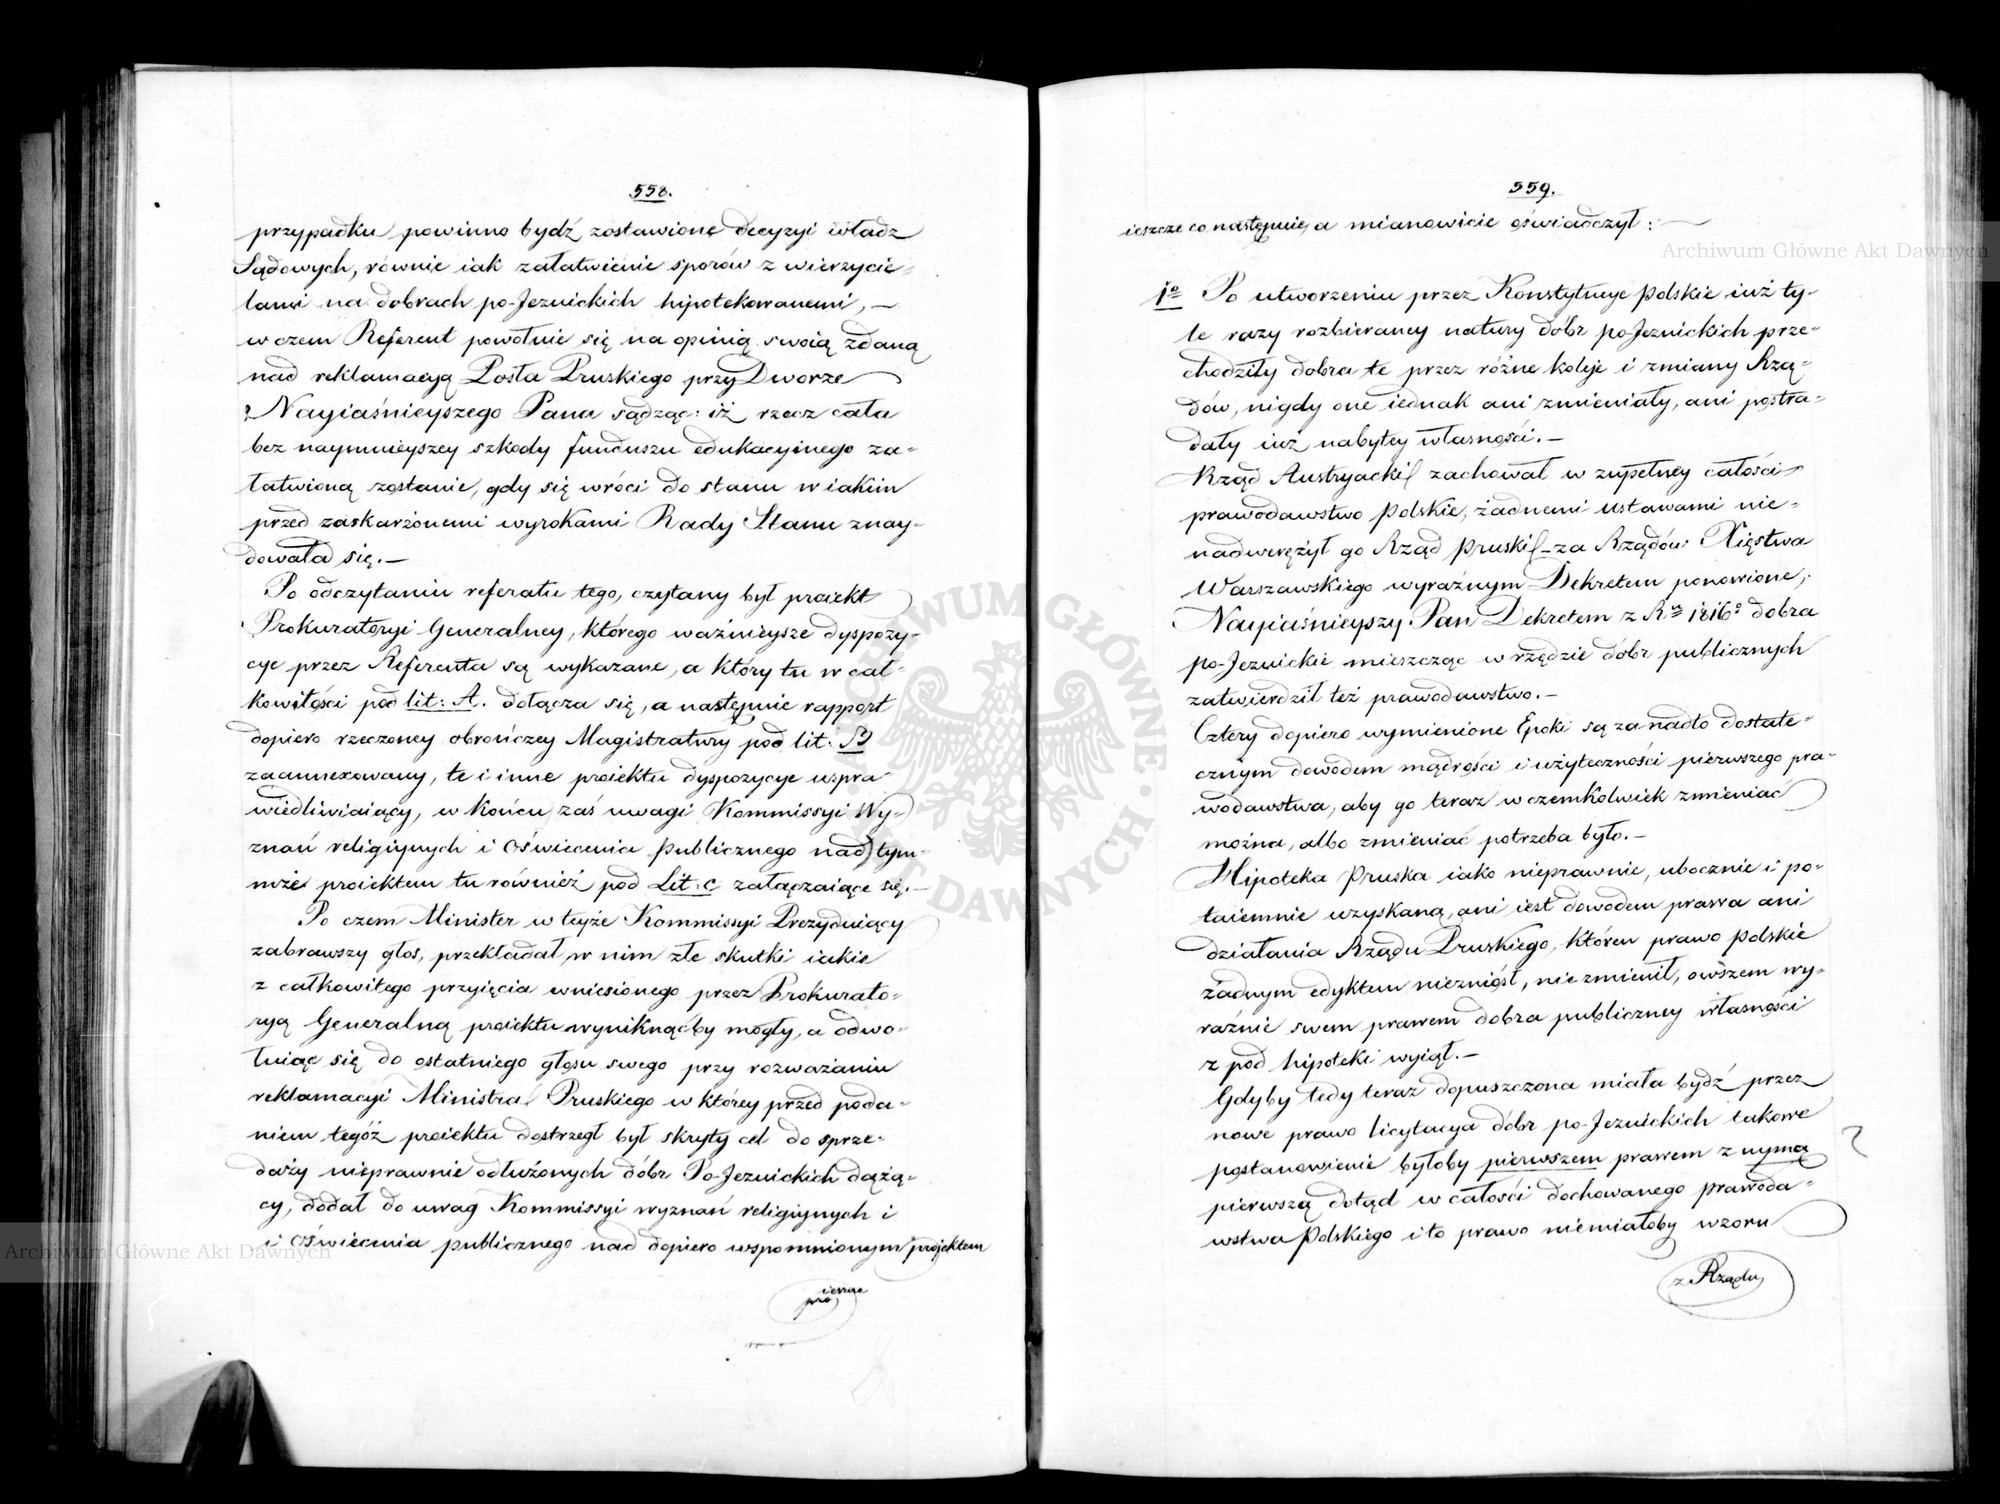 558.
przypadku powinno bydź zostawione decyzyi władz
Sądowych, równie iak załatwienie sporów z wierzycie=
lami na dobrach po-Jezuickich hipotekowanemi, —
w czem Referent powołuie się na opinią swoią zdaną
nad reklamacyą Posła Pruskiego przy Dworze
Nayiaśnieyszego Pana sądząc: iż rzecz cała
bez naymnieyszey szkody funduszu edukacyinego za=
łatwioną zostanie, gdy się wróci do stanu w iakim
przed zaskarżonemi wyrokami Rady Stanu znay=
dowała się. —
Po odczytaniu referatu tego, czytany był proiekt
Prokuratoryi Generalney, którego ważnieysze dyspozy=
cye przez Referenta są wykazane, a który tu w cał=
kowitości pod lit: A. dołącza się, a następnie rapport
dopiero rzeczoney obrończey Magistratury pod lit: B
zaannexowany, te i inne proiektu dyspozycye uspra=
wiedliwiaiący, w końcu zaś uwagi Kommissyi Wy=
znań religiynych i Oświecenia publicznego nad tym=
że proiektem tu również pod Lit: C załączaiące się. —
Po czem Minister w teyże Kommissyi Prezyduiący
zabrawszy głos, przekładał w nim złe skutki iakie
z całkowitego przyięcia wniesionego przez Prokurato=
ryą Generalną proiektu wyniknąćby mogły, a odwo=
łuiąc się do ostatniego głosu swego przy rozważaniu
reklamacyi Ministra Pruskiego w którey przed poda=
niem tegóż proiektu dostrzegł był skryty cel do sprze=
daży nieprawnie odłużonych dóbr Po-Jezuickich dążą=
cy, dodał do uwag Kommissyi wyznań religiynych i
i Oświecenia publicznego nad dopiero wspomnionym projektem
ieszcze
559.
ieszcze co następuie, a mianowicie oświadczył: —
1o Po utworzeniu przez Konstytucye Polskie iuż ty=
le razy rozbieraney natury dóbr po-Jezuickich prze=
chodziły dobra te przez różne koleje i zmiany Rzą=
dów, nigdy one iednak ani zmieniały, ani postra=
dały iuż nabytey własności. —
Rząd Austryacki zachował w zupełney całości
prawodawstwo Polskie, żadnemi ustawami nie=
nadwerężył go Rząd Pruski – za Rządów Xięstwa
Warszawskiego wyraźnym Dekretem ponowione;
Nayiaśnieyszy Pan Dekretem z Ru 1816o dobra
po-Jezuickie mieszcząc w rzędzie dóbr publicznych
zatwierdził też prawodawstwo. —
Cztery dopiero wymienione Epoki są za nadto dostate=
cznym dowodem mądrości i użyteczności pierwszego pra=
wodawstwa, aby go teraz w czemkolwiek zmieniać
można, albo zmieniać potrzeba było. —
Hipoteka Pruska iako nieprawnie, ubocznie i po=
taiemnie uzyskaną, ani iest dowodem prawa ani
działania Rządu Pruskiego, któren prawo Polskie
żadnym edyktem niezniósł, nie zmienił, owszem wy=
raźnie swem prawem dobra publiczney własności
z pod hipoteki wyiął. —
Gdyby tedy teraz dopuszczona miała bydź przez
nowe prawo licytacya dóbr po-Jezuickich takowe
postanowienie byłoby pierwszem prawem z nymą
pierwszą dotąd w całości dochowanego prawoda=
wstwa Polskiego i to prawo niemiałoby wzoru
z Rządu
Archiwum Główne Akt Dawnych
Archiwum Główne Akt Dawnych
ARCHIWUM GŁÓWNE AKT DAWNYCH